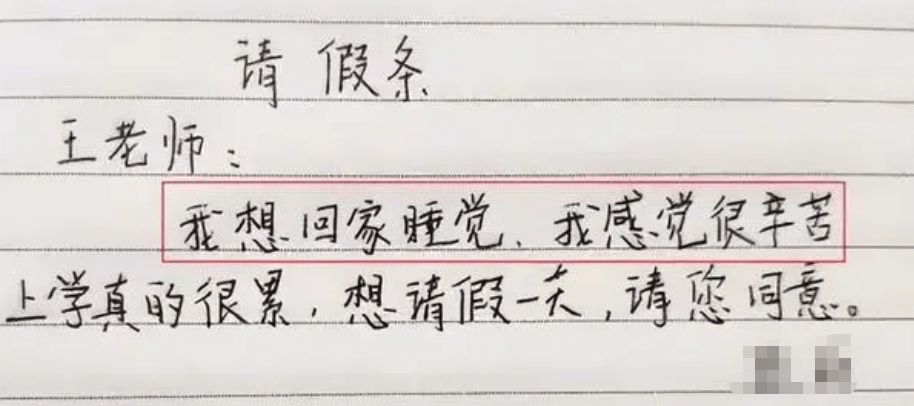 请假条
王老师：
我想回家睡觉、我感觉很辛苦
上学真的很累，想请假一天，请您同意。